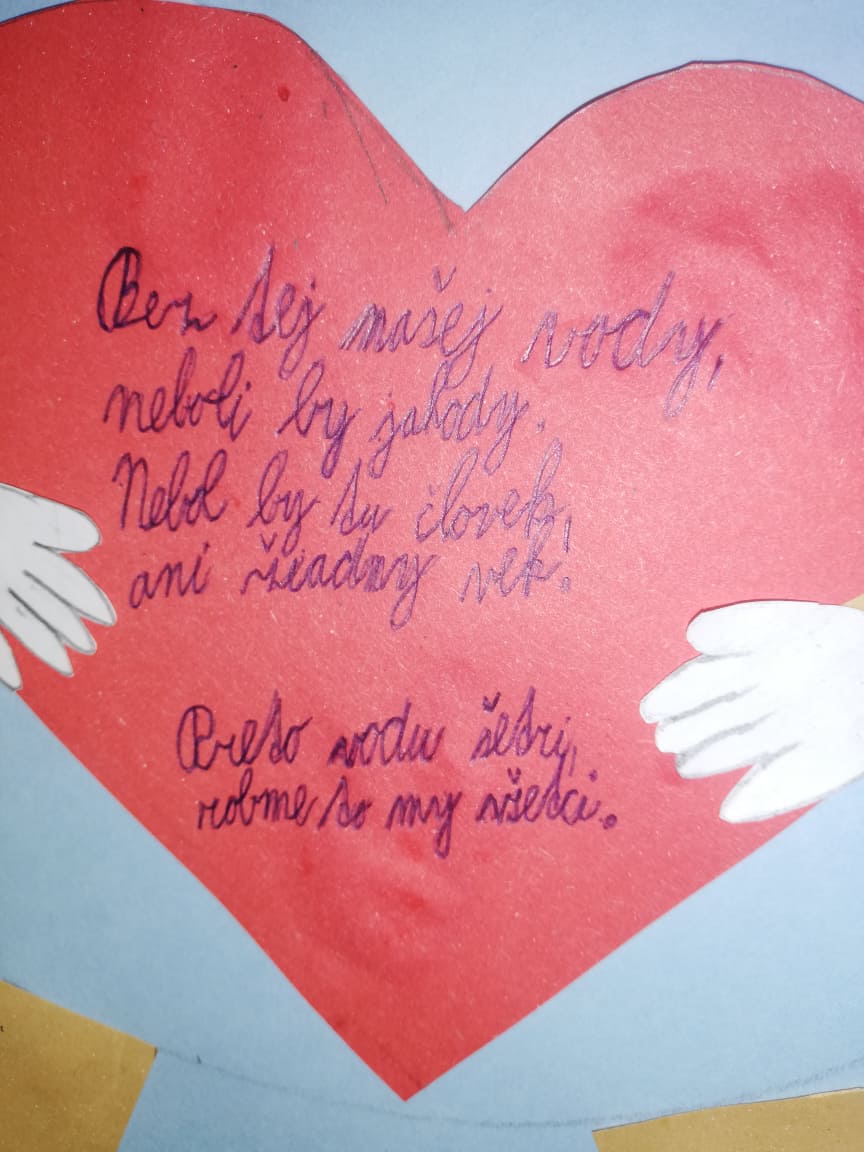 Bez tej našej vody,
neboli by jahody.
Nebol by tu človek,
ani žiadny vek!
Preto vodu šetri,
robme to my všetci.